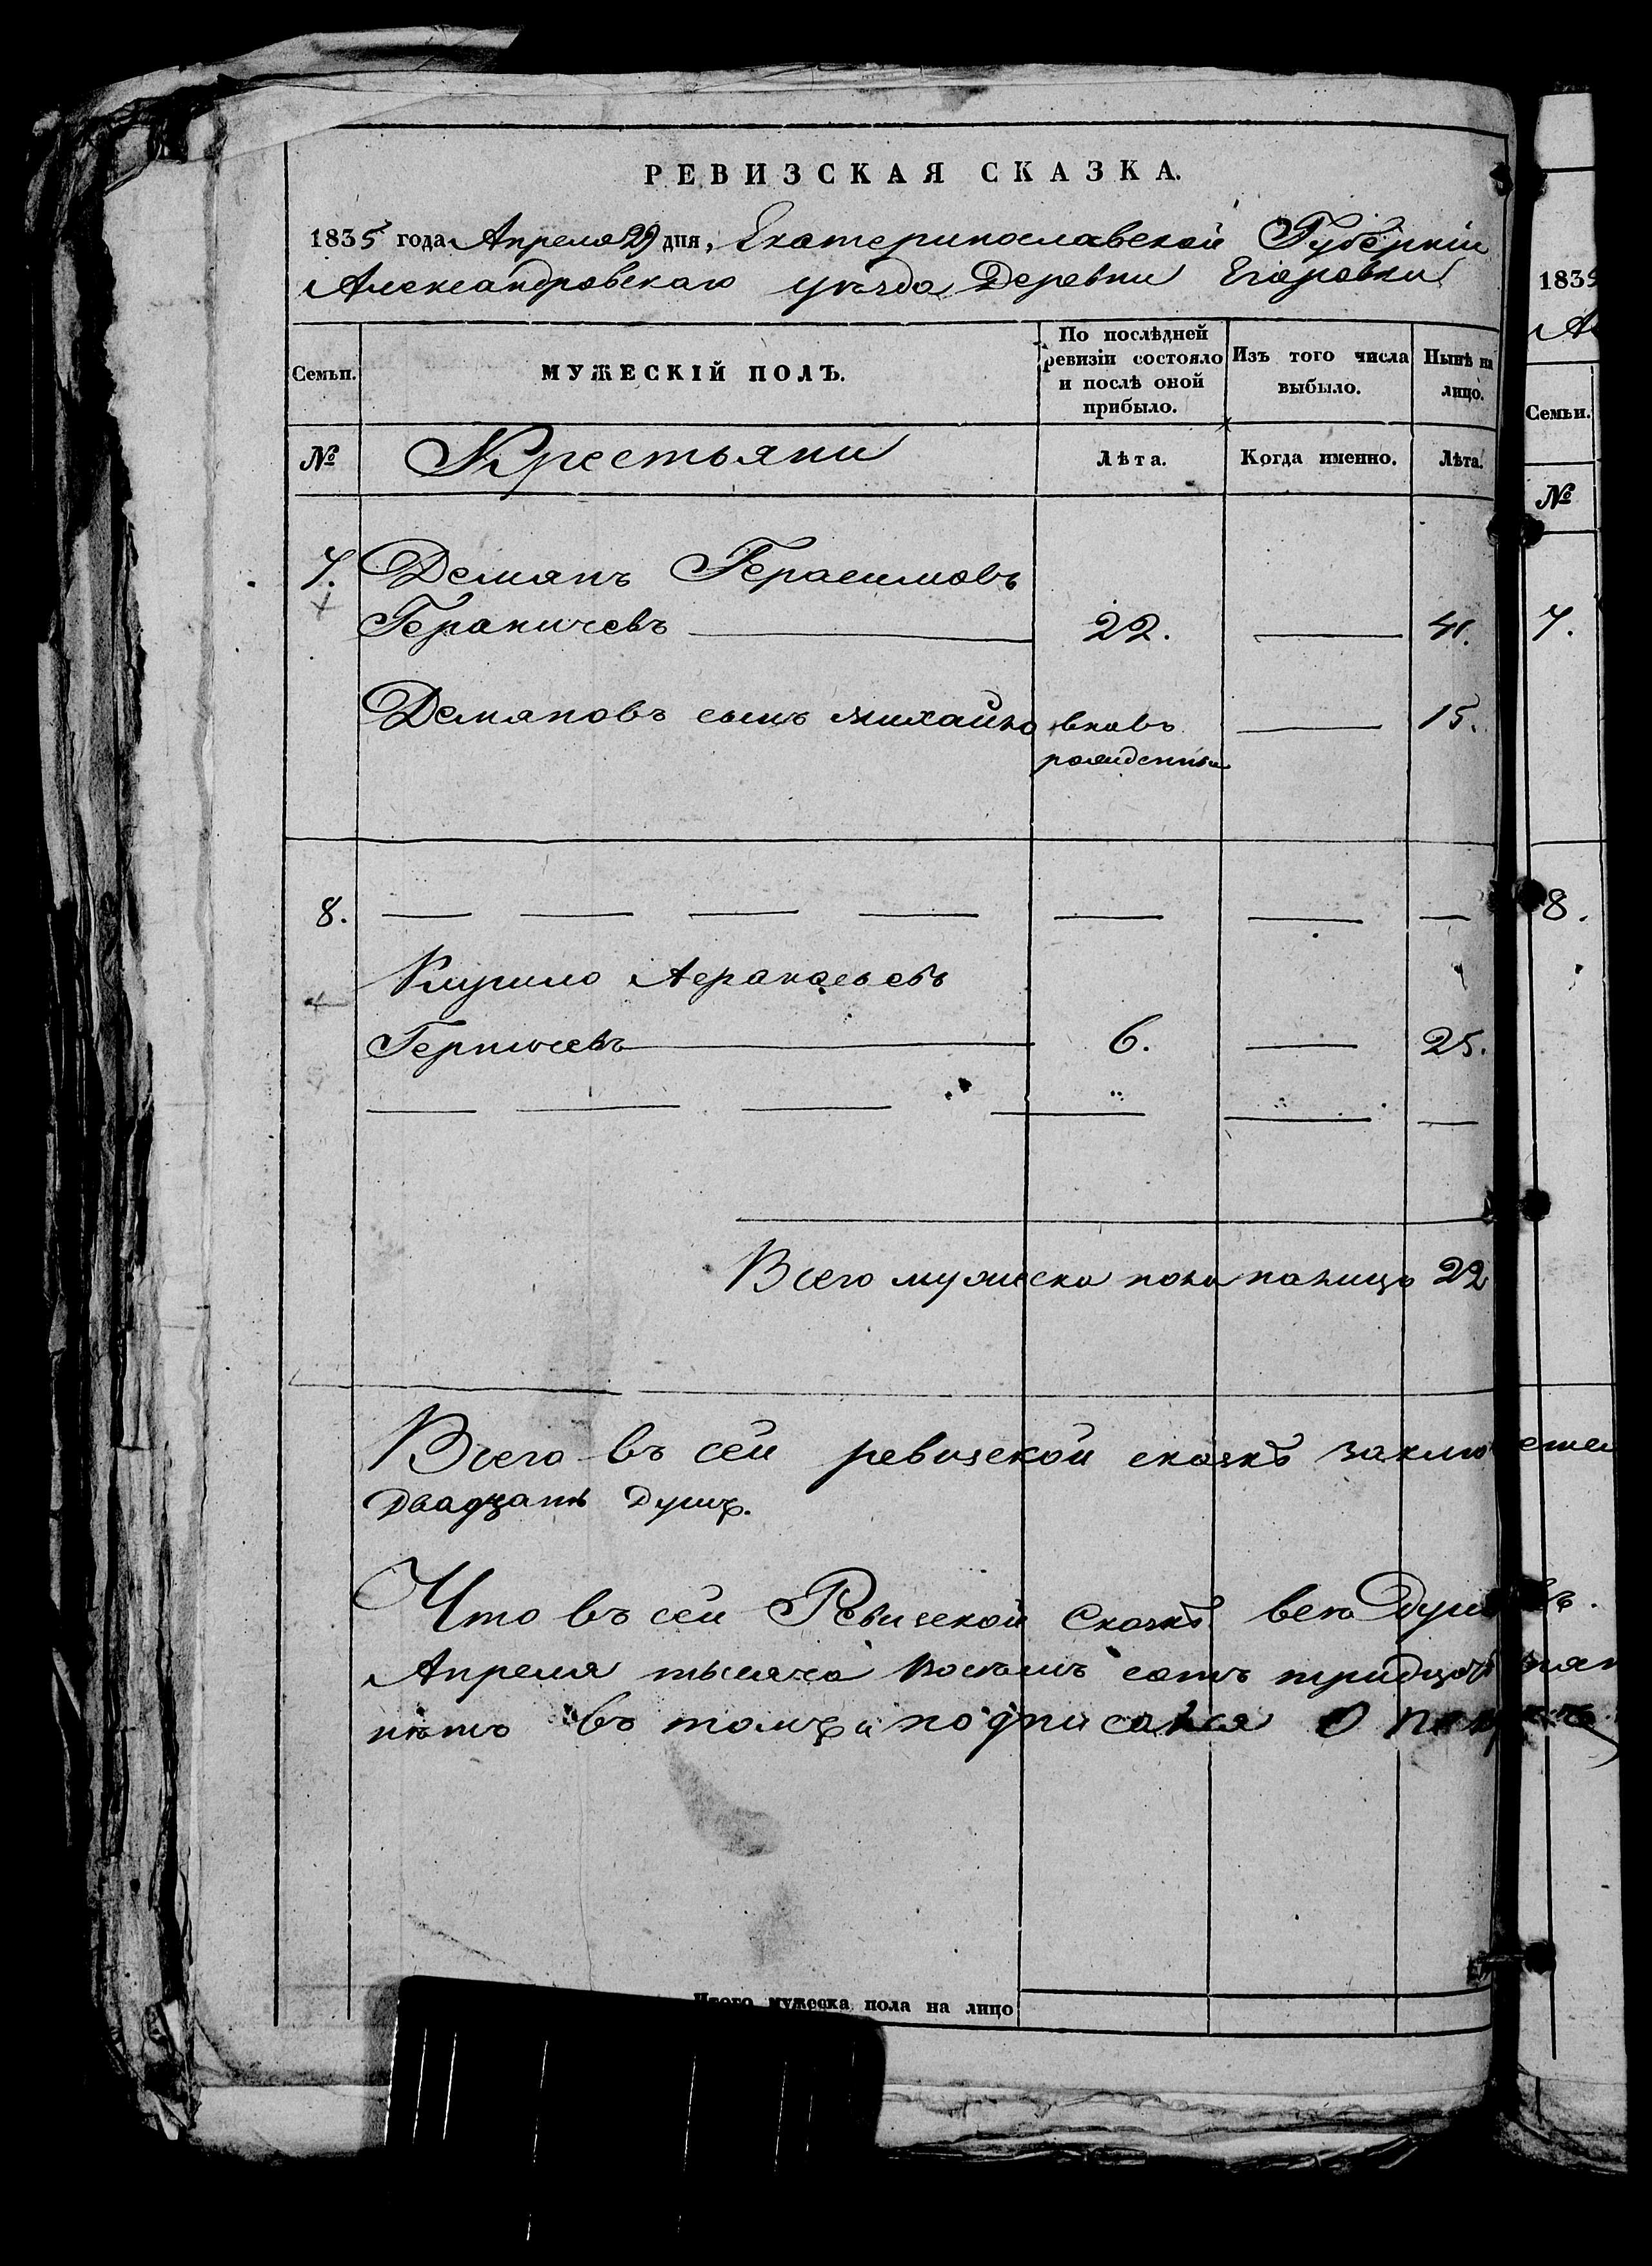 РЕВИЗСКАЯ СКАЗКА.
1835 года Апреля 29 дня, Екатеринославской Губерніи
Александровскаго уѣзда Деревни Егоровки
Семьи.
МУЖЕСКІЙ ПОЛЪ.
По послѣдней ревизіи состояло и послѣ оной прибыло.
Изъ того числа выбыло.
Нынѣ на лицо.
№ Крестьяни Лѣта. Когда именно. Лѣта.
7. Демянъ Герасимовъ
Гераничевъ 22. 41.
Демяновъ сынъ михайло вновъ 15.
рожденный
8.
Аѳанасьевъ
6. 25.
Всего мужеска пола налицо 22
Всего въ сей ревизской сказкѣ заклю
двадцать душъ.
Что въ сей Ревизской Сказкѣ всѣ Души
Апреля тысяча восемъ сотъ тридцать
въ томъ и подписался
Итого мужеска пола на лицо
1835
Семьи.
№
7.
8.